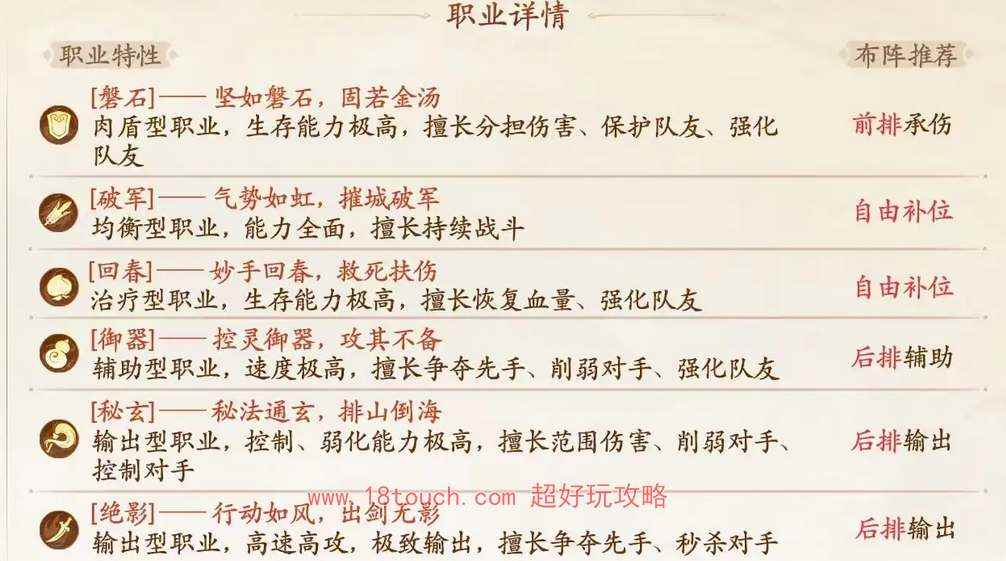 职业详情
职业特性
布阵推荐
[磐石]—— 坚如磐石，固若金汤
肉盾型职业，生存能力极高，擅长分担伤害、保护队友、强化
队友
前排承伤
[破军]—— 气势如虹，摧城破军
均衡型职业，能力全面，擅长持续战斗
自由补位
[回春]—— 妙手回春，救死扶伤
治疗型职业，生存能力极高，擅长恢复血量、强化队友
自由补位
[御器]—— 控灵御器，攻其不备
辅助型职业，速度极高，擅长争夺先手、削弱对手、强化队友
后排辅助
[秘玄]—— 秘法通玄，排山倒海
输出型职业，控制、弱化能力极高，擅长范围伤害、削弱对手、
控制对手
后排输出
www.18touch.com 超好玩攻略
[绝影]—— 行动如风，出剑无影
输出型职业，高速高攻，极致输出，擅长争夺先手、秒杀对手
后排输出